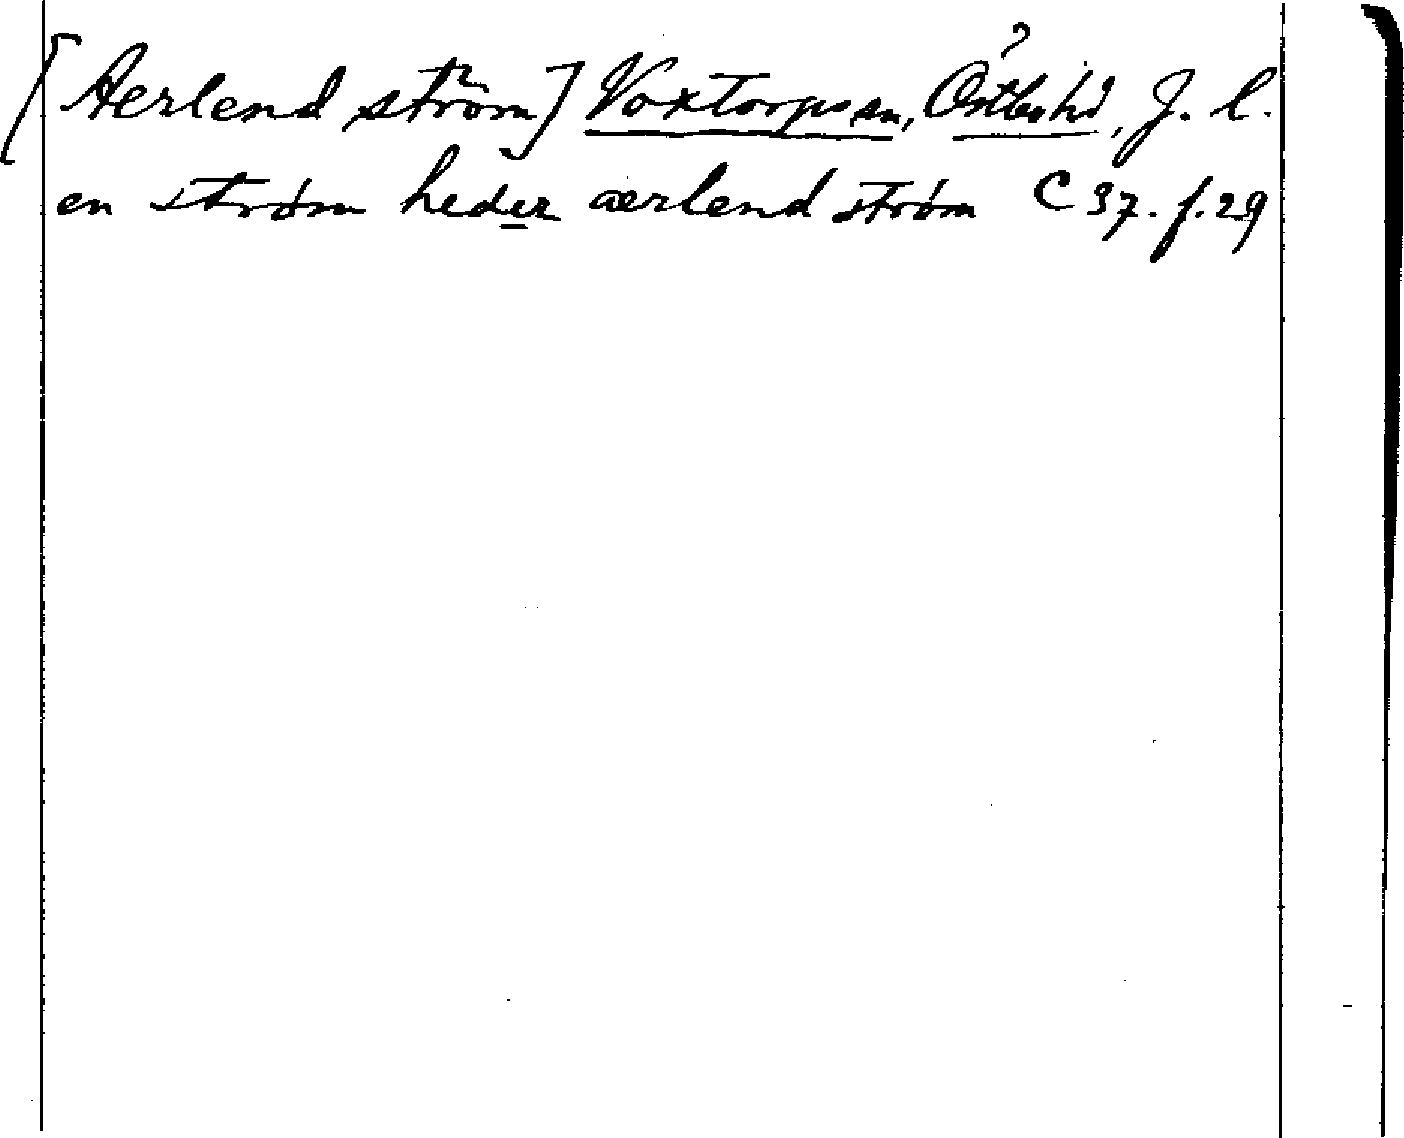 ?
[Aerlend ström] Voxtorps sn, Östbo hd, J. l.
en strøm heder aerlend strøm C 37. f. 29